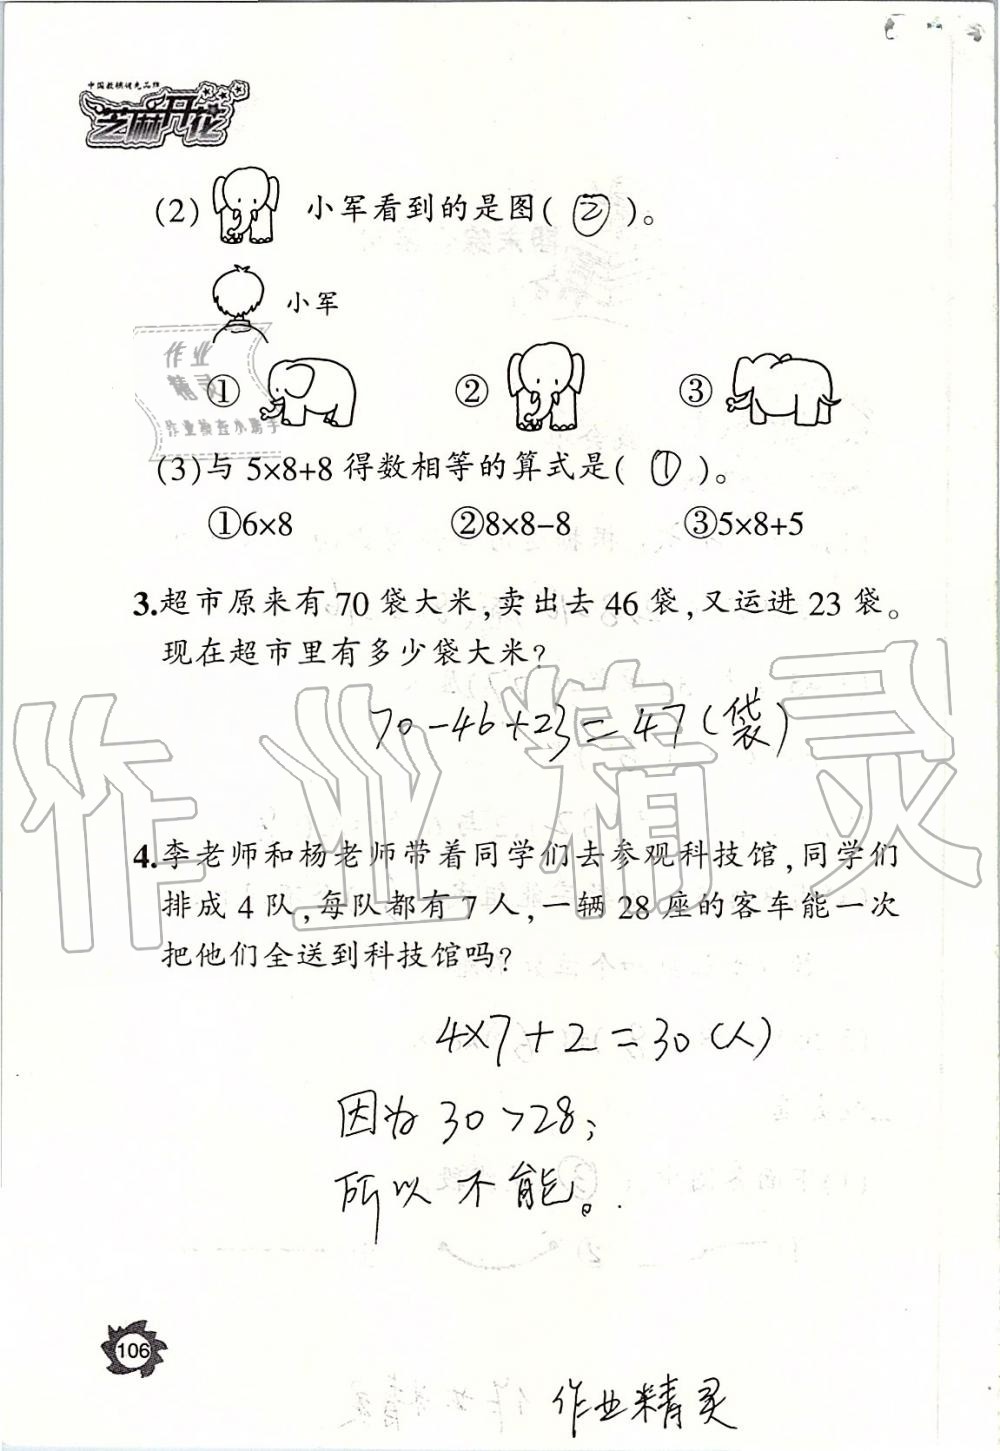 中国教辅领先品牌
芝麻开花
(2) 小军看到的是图( ② )。
小军
作业
精灵
作业检查小助手
① ② ③
(3)与 5×8+8 得数相等的算式是( ① )。
①6×8 ②8×8-8 ③5×8+5
3.超市原来有 70 袋大米,卖出去 46 袋,又运进 23 袋。
现在超市里有多少袋大米?
70-46+23=47(袋)
作业精灵
4.李老师和杨老师带着同学们去参观科技馆,同学们
排成 4 队,每队都有 7 人,一辆 28 座的客车能一次
把他们全送到科技馆吗?
4×7+2=30(人)
因为 30>28;
所以不能。
106
作业精灵